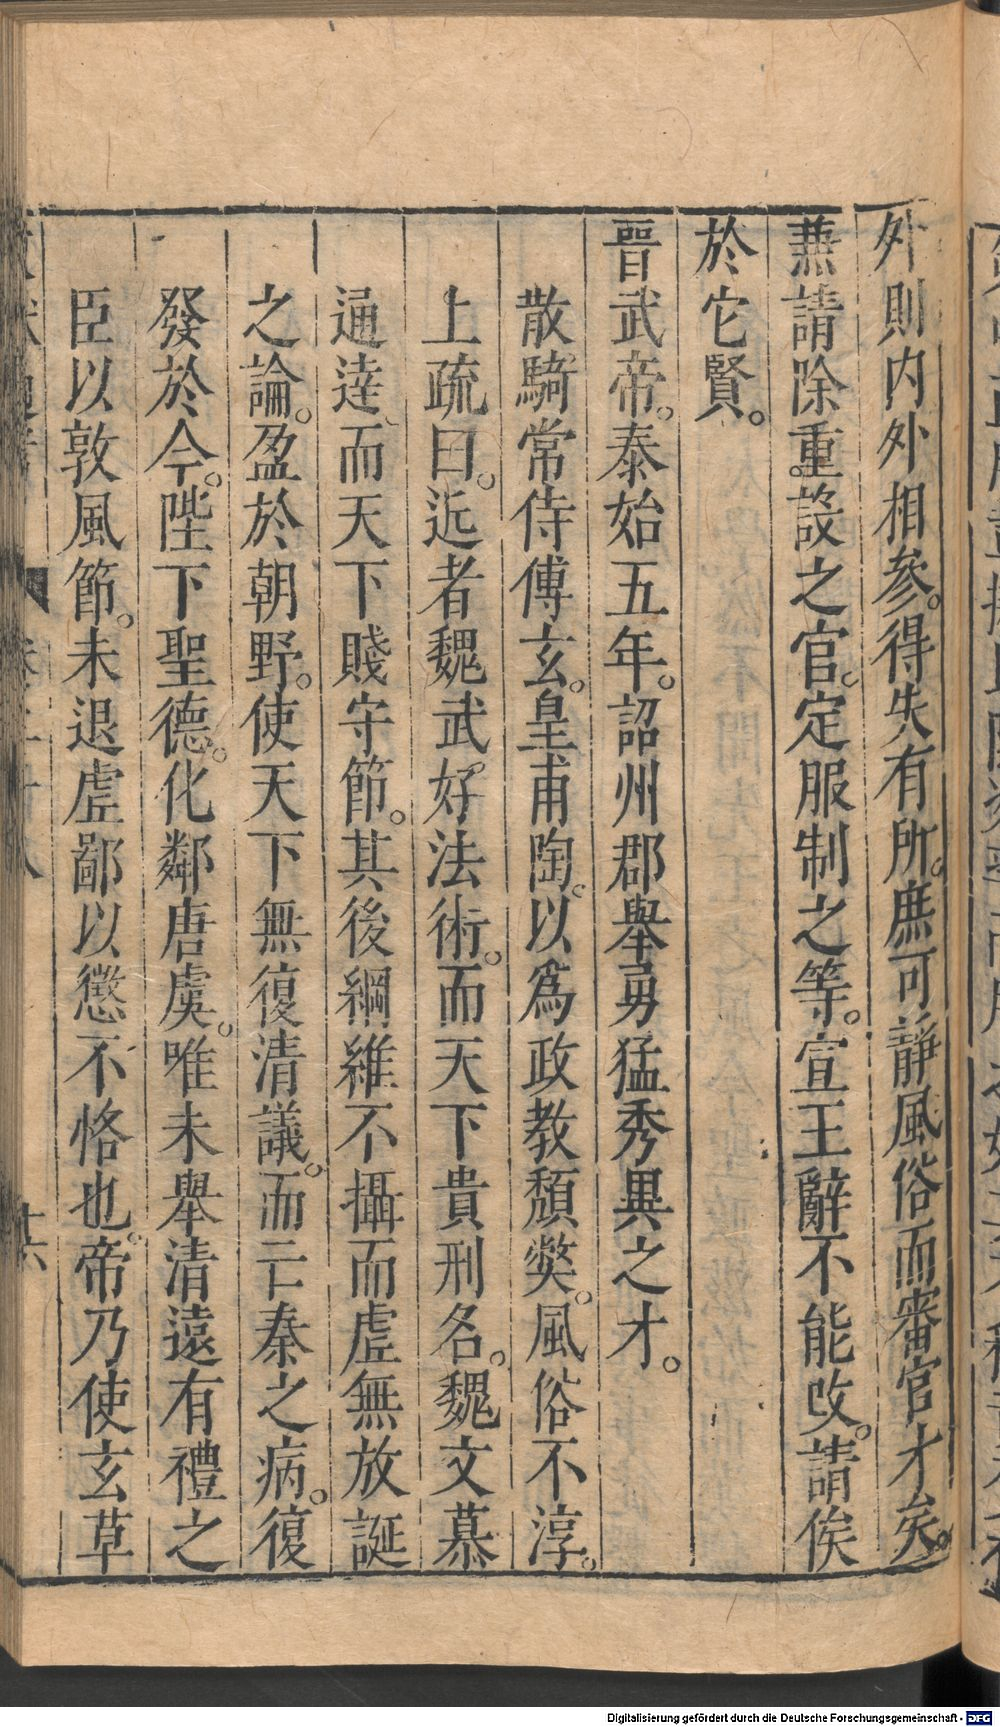 外則内外相參。得失有所。庶可靜風俗而審官才矣。
兼請除重設之官。定服制之等。宣王辭不能改。請俟
於它賢。
晉武帝。泰始五年。詔州郡舉勇猛秀異之才。
散騎常侍傅玄。皇甫陶。以為政教頹獘。風俗不淳。
上疏曰。近者魏武好法術。而天下貴刑名。魏文慕
通達。而天下賤守節。其後綱維不攝而虛無放誕
之論。盈於朝野。使天下無復清議。而亡秦之病。復
發於今。陛下聖德。化鄰唐虞。唯未舉清遠有禮之
臣以敦風節。未退虛鄙以懲不恪也。帝乃使玄草
十六
Digitalisierung gefördert durch die Deutsche Forschungsgemeinschaft - DFG